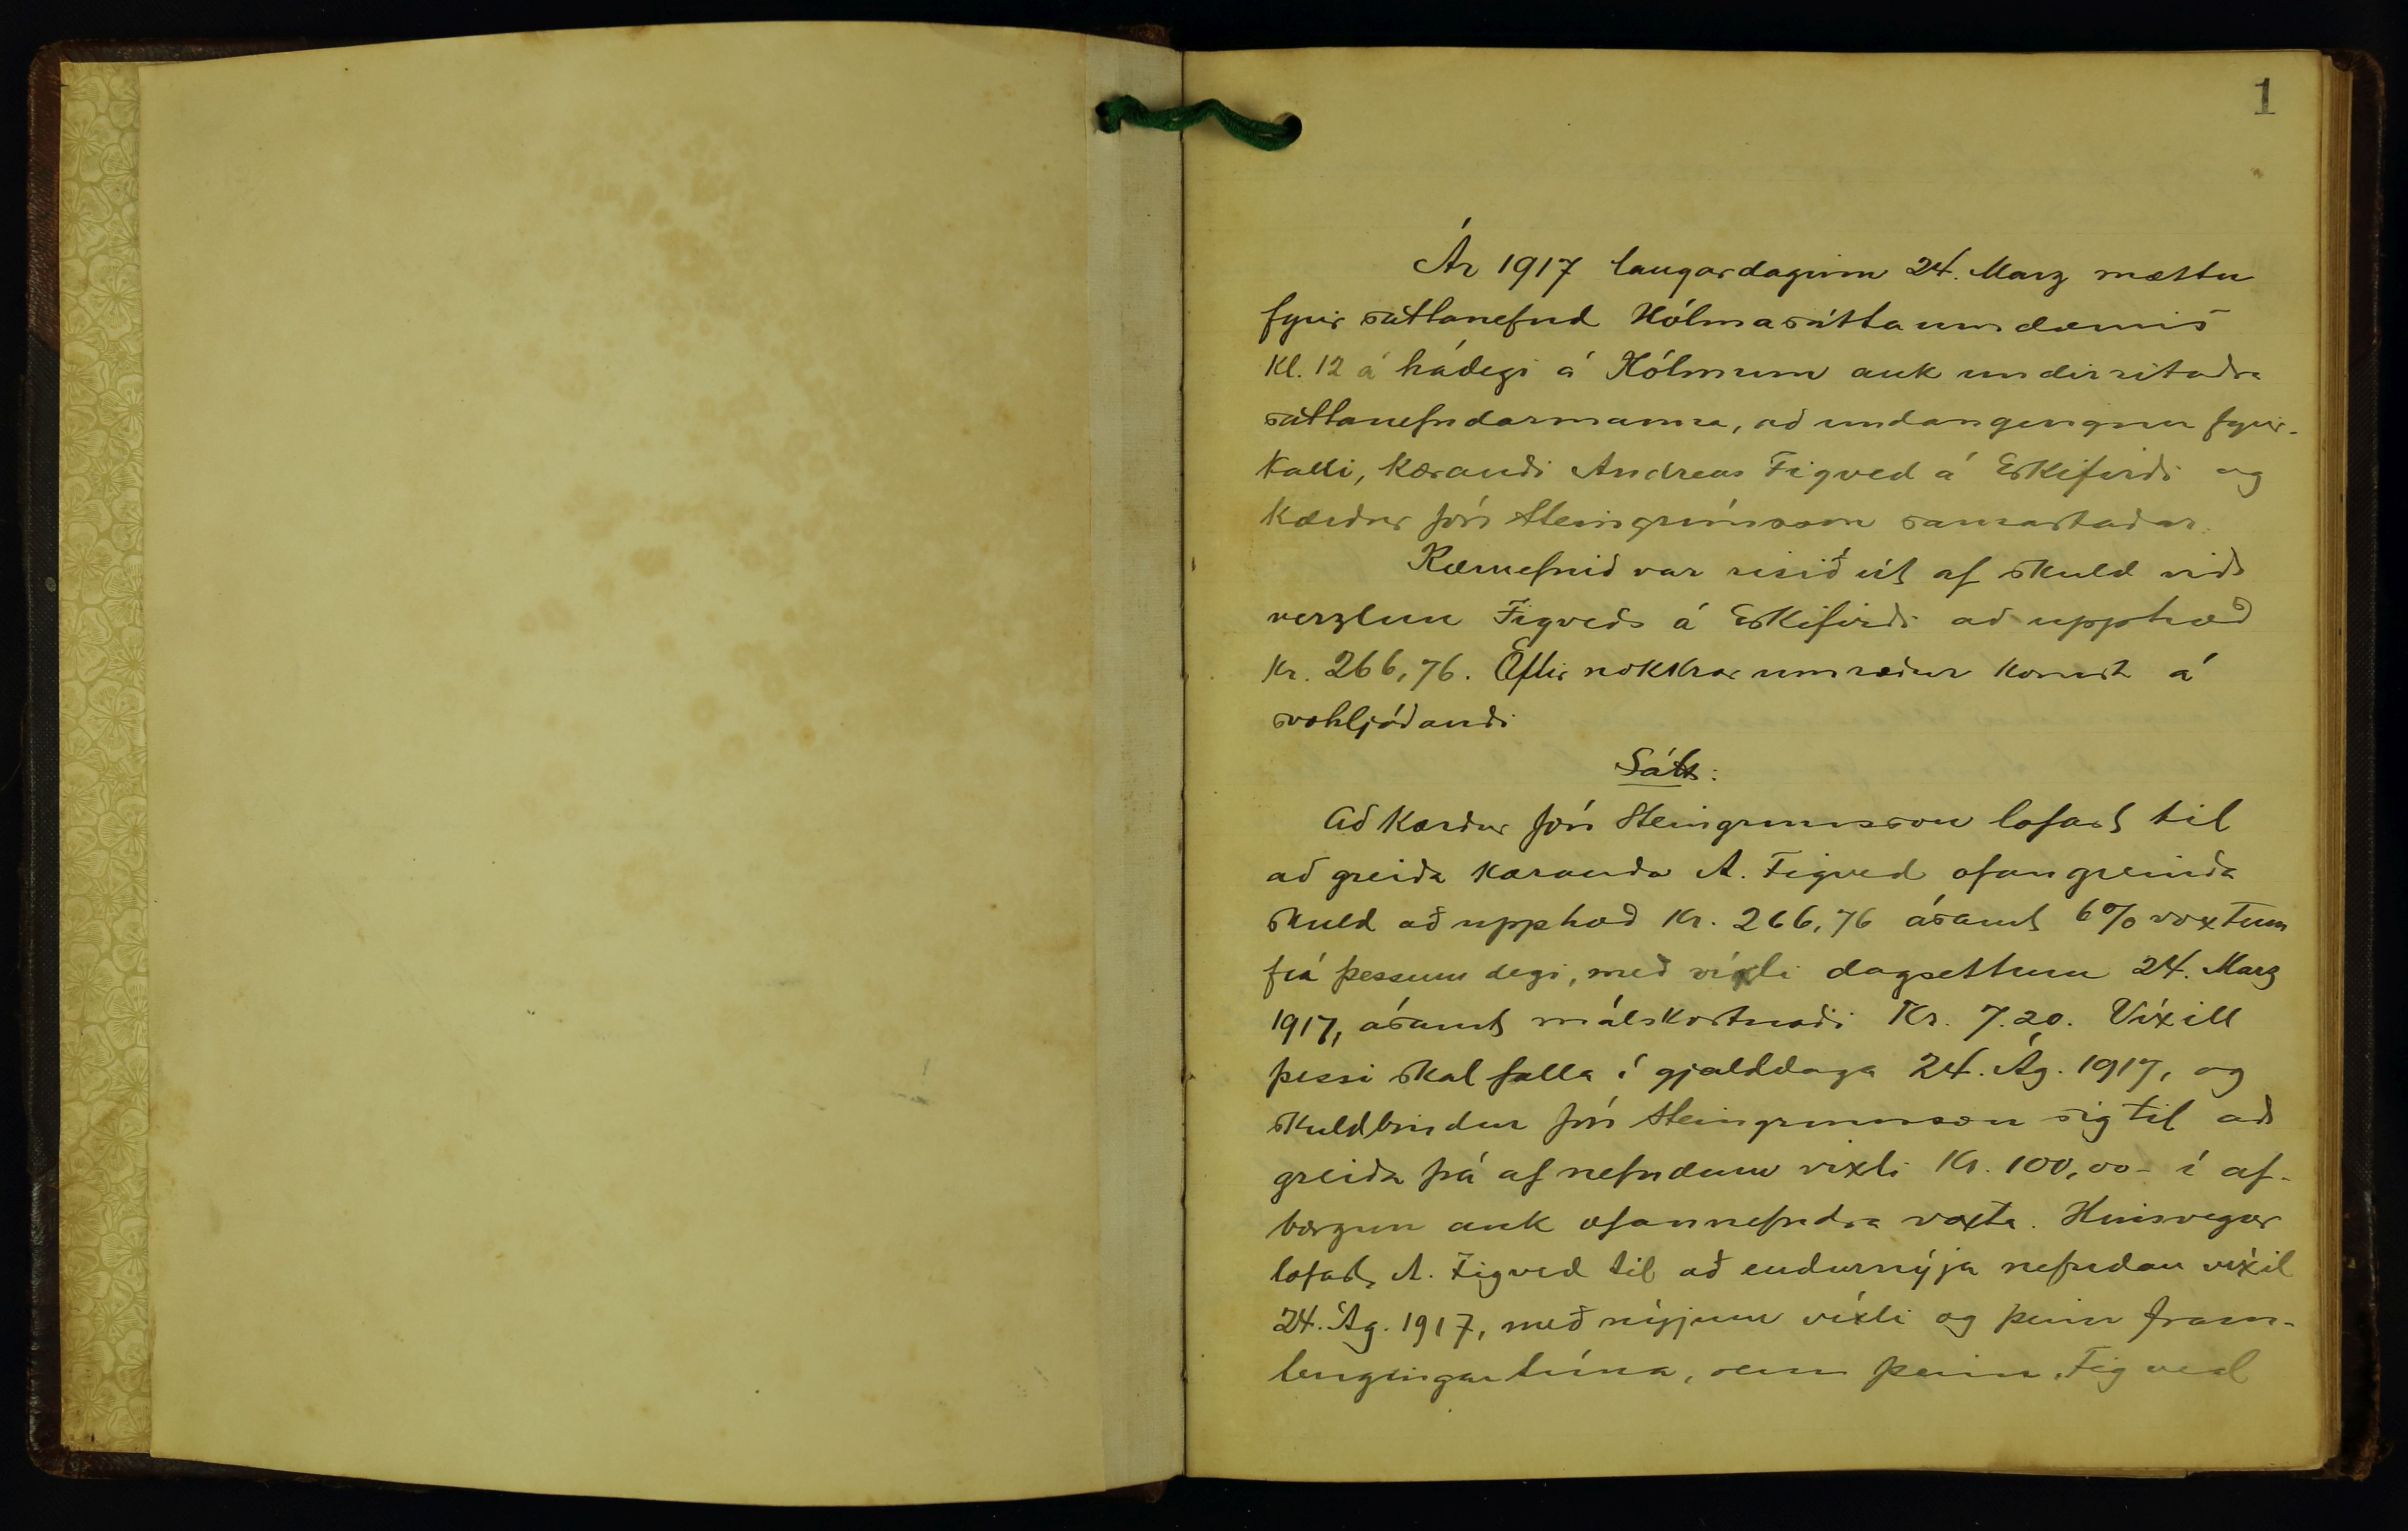 1
Ár 1917 laugardaginn 24. Marz mættu
fyrir sáttanefnd Hólmasáttaumdæmis
Kl. 12 á hádegi á Hólmum auk undirritaðra
sáttanefndarmanna, að undangengnu fyrir-
kalli, kærandi Andreas Figved á Eskifirði og
kærður Jón Steingrímsson samastaðar.
Kæruefnið var risið út af skuld við
verzlun Figveds á Eskifirði að upphæð
Kr. 266,76. Eftir nokkrar umræður komst á
svohljóðandi
Sátt:
Að kærður Jón Steingrimsson lofast til
að greiða kæranda A. Figved ofangreinda
skuld að upphæð Kr. 266,76 ásamt 6% vöxtum
frá þessum degi, með víxli dagsettum 24. Marz
1917, ásamt málskostnaði Kr. 7.20. Víxill
þessi skal falla í gjalddaga 24. Ág. 1917, og
skuldbindur Jón Steingrimsson sig til að
greiða þá af nefndum víxli Kr. 100,00 - í af-
borgun auk ofannefndra vaxta. Hinsvegar
lofast A. Figved til að endurnýja nefndan víxil
24. Ág. 1917, með nýjum víxli og þeim fram-
lengingartíma, sem þeim, Figved